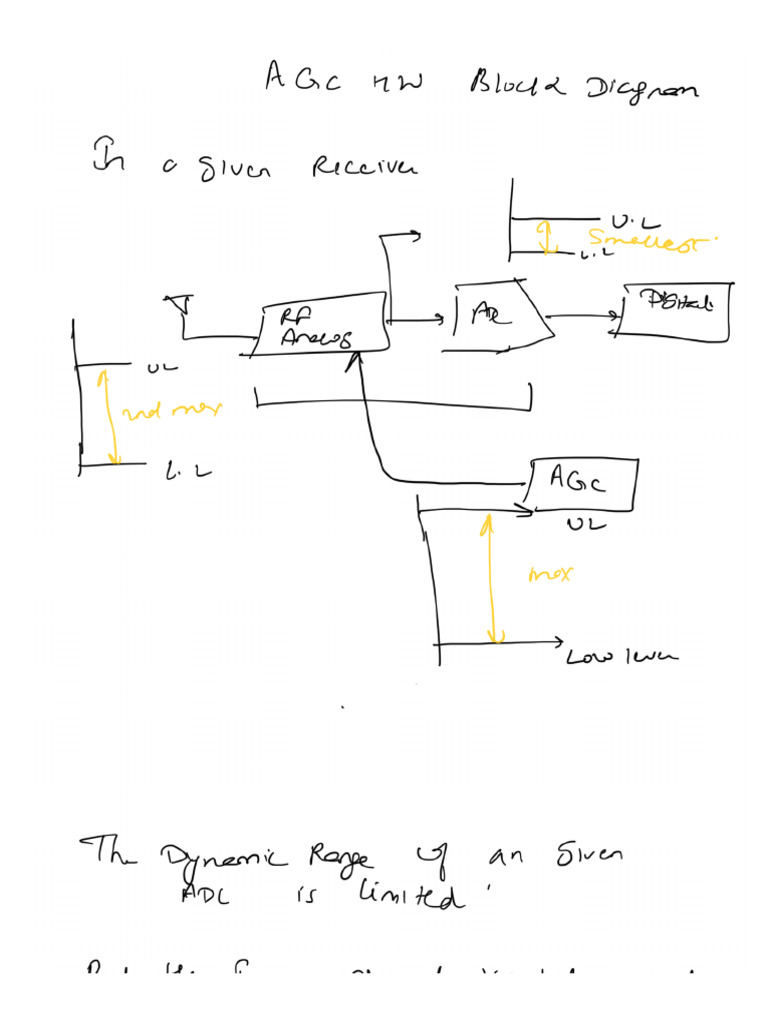 AGC HW Block Diagram
In a given Receiver
U.L
Smallest.
L.L
RF
Analog
ADC
Digital
UL
2nd max
L.L
AGC
UL
max
Low level
The Dynamic Range of an Given
ADC is limited